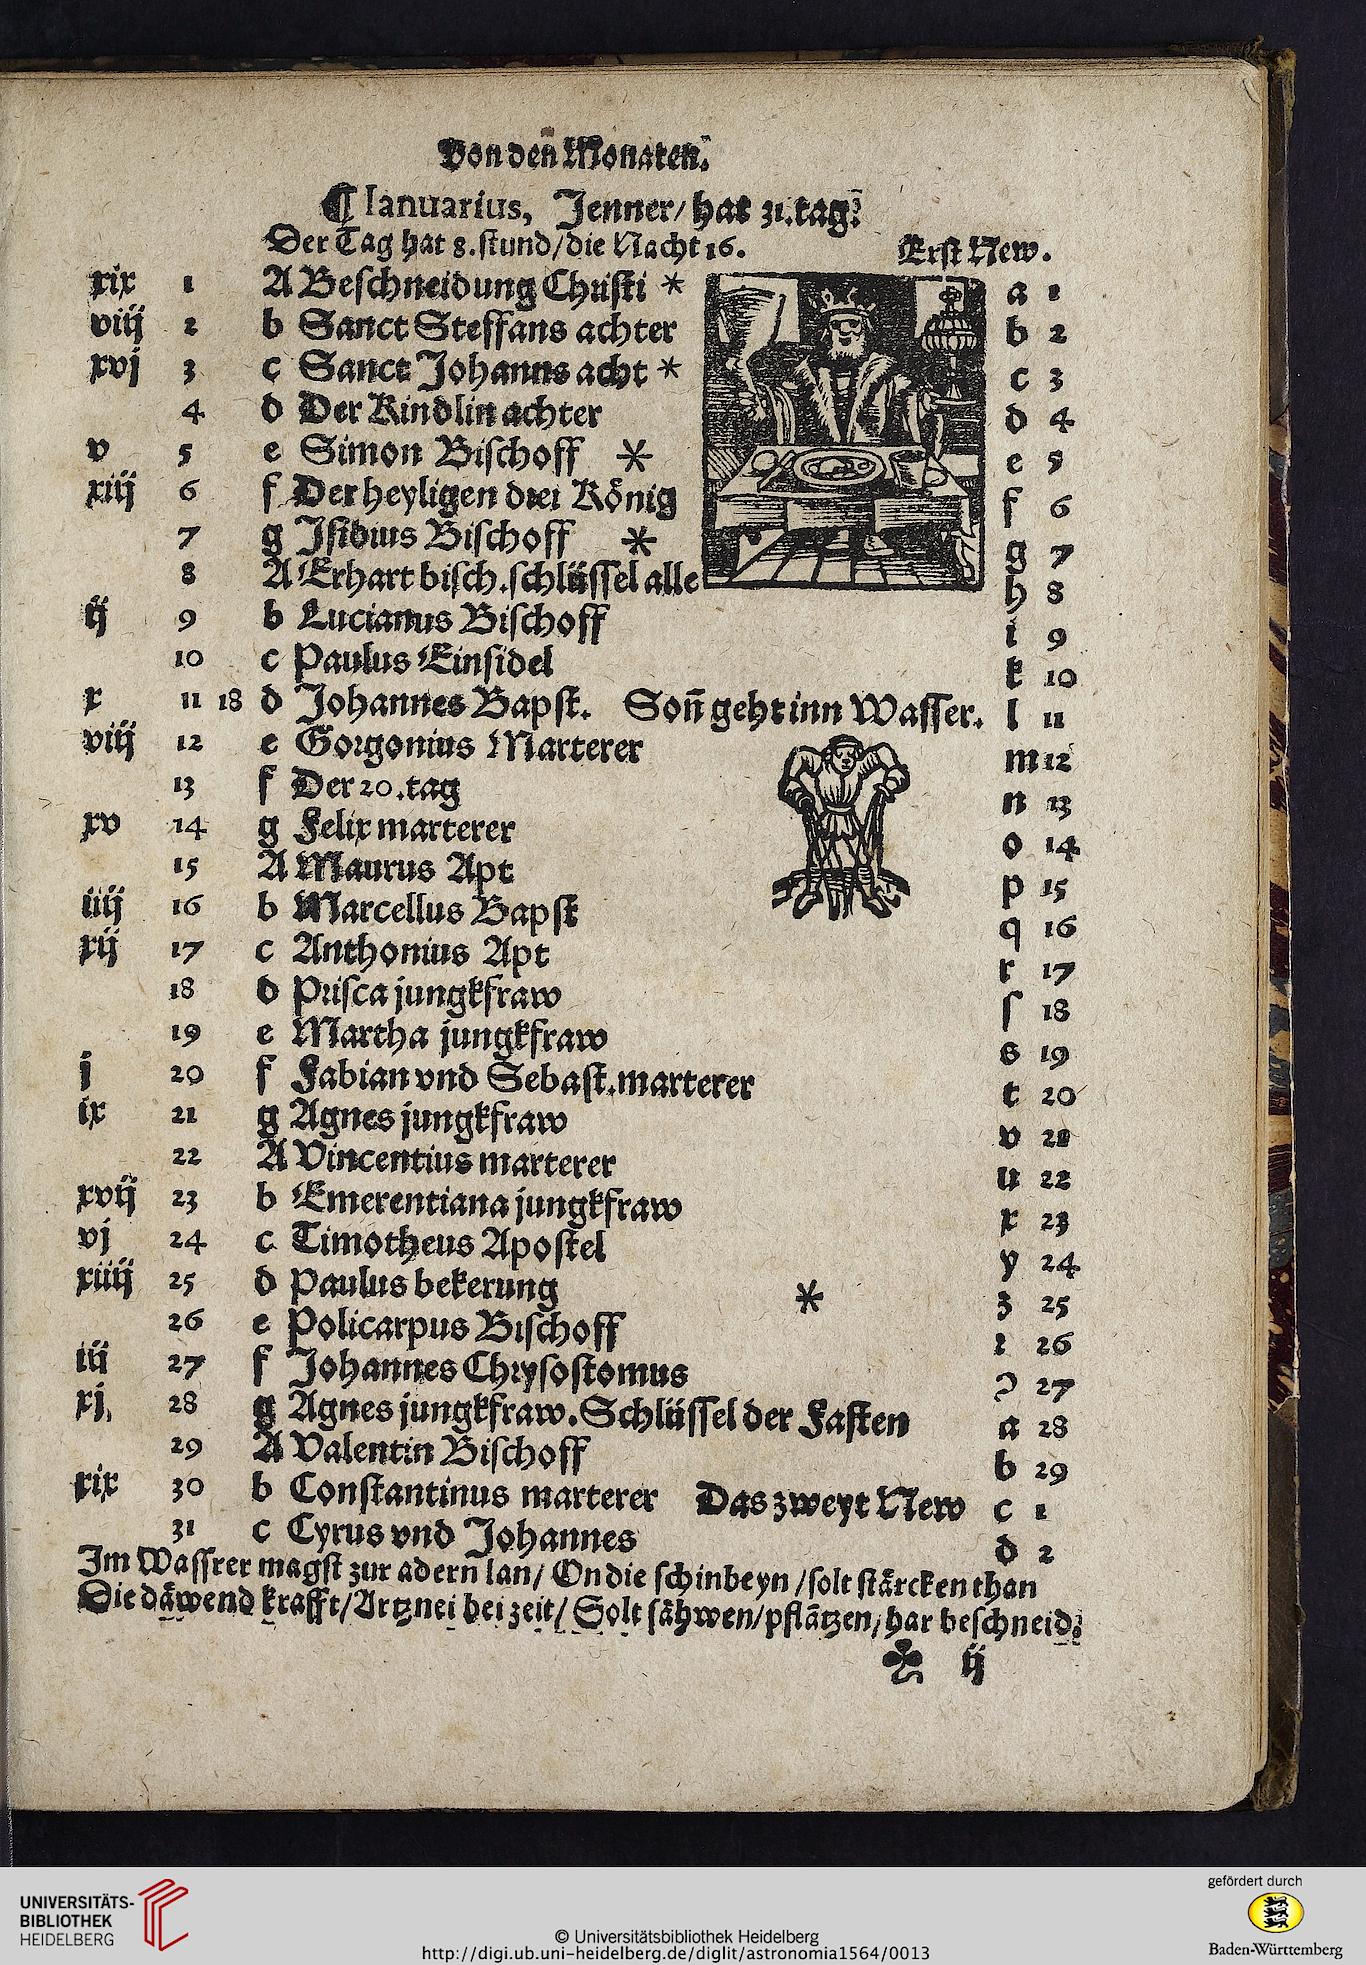 Von den Monaten.
¶ Ianuarius, Jenner / hat 31. tag.
Der Tag hat 8. stund / die Nacht 16.
Erst New.
xix 1 A Beschneidung Christi * a 1
viij 2 b Sanct Steffans achter b 2
xvj 3 c Sanct Johanns acht * c 3
4 d Der Kindlin achter d 4
v 5 e Simon Bischoff * e 5
xiij 6 f Der heyligen drei König f 6
7 g Isidius Bischoff * g 7
8 A Erhart bisch. schlüssel alle h 8
ij 9 b Lucianus Bischoff i 9
10 c Paulus Einsidel k 10
x 11 18 d Johannes Bapst. Son̄ geht inn Wasser. l 11
viij 12 e Gorgonius Marterer m 12
13 f Der 20. tag n 13
xv 14 g Felix marterer o 14
15 A Maurus Apt p 15
iiij 16 b Marcellus Bapst q 16
xij 17 c Anthonius Apt r 17
18 d Prisca jungkfraw ſ 18
19 e Martha jungkfraw s 19
j 20 f Fabian vnd Sebast. marterer t 20
ix 21 g Agnes jungkfraw v 21
22 A Vincentius marterer u 22
xvij 23 b Emerentiana jungkfraw x 23
vj 24 c Timotheus Apostel y 24
xiiij 25 d Paulus bekerung * z 25
26 e Policarpus Bischoff 26
iij 27 f Johannes Chrysostomus 27
xj. 28 g Agnes jungkfraw. Schlüssel der Fasten a 28
29 A Valentin Bischoff b 29
xix 30 b Constantinus marterer Das zweyt New c 1
31 c Cyrus vnd Johannes d 2
Im Wassrer magst zur adern lan / On die schinbeyn / solt stärcken than
Die däwend krafft / Artznei bei zeit / Solt sähwen / pflātzen / har beschneid.
♣ ij
UNIVERSITÄTS-
BIBLIOTHEK
HEIDELBERG
© Universitätsbibliothek Heidelberg
http://digi.ub.uni-heidelberg.de/diglit/astronomia1564/0013
gefördert durch
Baden-Württemberg